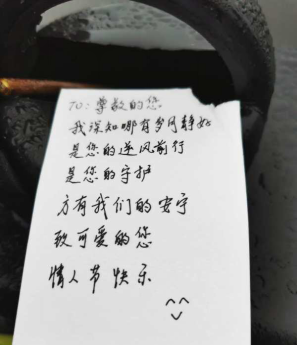 TO：尊敬的您
我深知哪有岁月静好
是您的逆风前行
是您的守护
方有我们的安宁
致可爱的您
情人节快乐